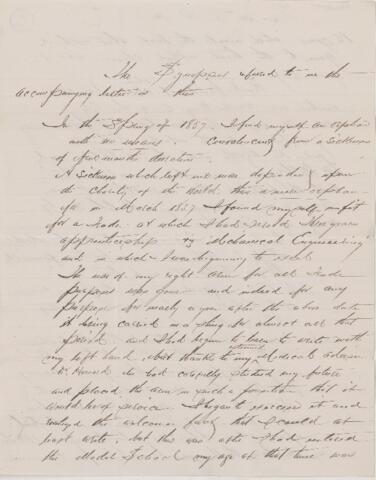 The Synopsis refered to in the
accompanying letter is this
In the Spring of 1857 I find myself an orphan
with no means. Convalescent from a sickness
of nine months duration.
A Sickness which left me was depending upon
the charity of the world this a mere orphan
in March 1857 I found myself unfit
for a Trade at which I had served
apprenticeship Mechanical Engineering
and in which I was beginning to
The use of my right arm for all trade
purposes was gone and indeed for any
purpose for nearly a year after the above date
it being carried in a sling for almost all that
period. and I had begun to learn to write with
my left hand, but thanks to my Medical adviser
he had carefully studied my
and placed the arm in such a position that it
would be of service. I began to exercise it and
the welcome fact that I could at
last write, but this was after I had entered
the Model School my age at that time was